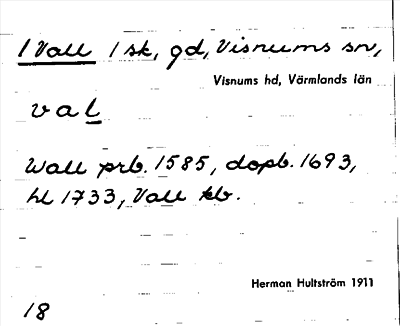 1 Vall 1 sk, gd, Visnums sn,
Visnums hd, Värmlands län
val
Wall prb. 1585, dopb. 1693,
hl 1733, Vall kb.
Herman Hultström 1911
18